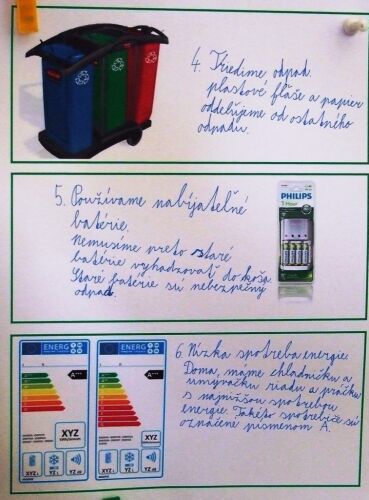 4. Triedime odpad.
plastové fľaše a papier
oddeľujeme od ostatného
odpadu.
5. Používame nabíjateľné
batérie.
Nemusíme preto staré
batérie vyhadzovať do koša.
Staré batérie sú nebezpečný
odpad.
PHILIPS
ENERG
A+++
XYZ
ENERG
A+++
XYZ
6. Nízka spotreba energie.
Doma, máme chladničku a
umývačku riadu a práčku
s najnižšou spotrebou
energie. Takéto spotrebiče sú
označené písmenom A.